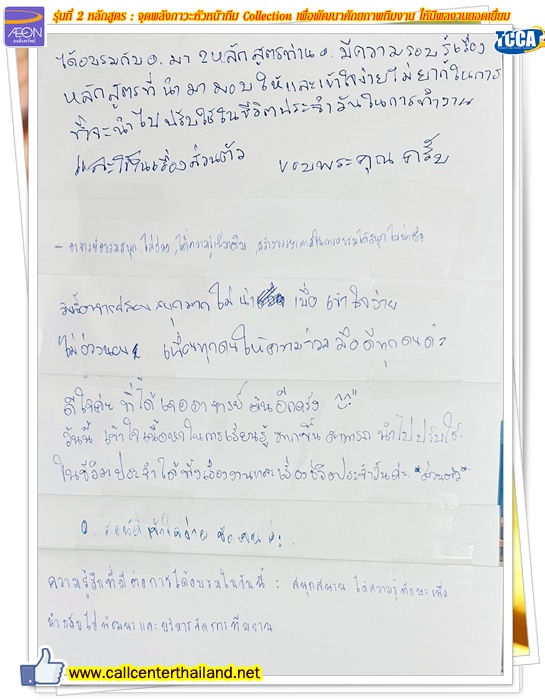 รุ่นที่ 2 หลักสูตร : จุดพลังภาวะหัวหน้าทีม Collection เพื่อพัฒนาศักยภาพทีมงาน ให้มีผลงานยอดเยี่ยม
AEON
TCCA
ได้อบรมกับ อ. มา 2 หลักสูตร ท่าน อ. มีความรอบรู้เรื่อง
หลักสูตรที่นำมามอบให้และเข้าใจง่ายไม่ยากในการ
ที่จะนำไปปรับใช้ในชีวิตประจำวันในการทำงาน
และใช้ในเรื่องส่วนตัว ขอบพระคุณครับ
- อาจารย์อบรมสนุก ไม่ง่วง, ได้ความรู้เพิ่มเติม,
วันนี้อาจารย์สอนสนุกมากไม่น่าเบื่อ เข้าใจง่าย
ไม่ง่วงนอน เพื่อนทุกคนให้ความร่วมมือดีทุกคนค่ะ
ดีใจค่ะ ที่ได้เจออาจารย์ต้นอีกครั้ง
วันนี้ เข้าใจเนื้อหาในการเรียนรู้ มากขึ้น สามารถนำไปปรับใช้
ในชีวิตประจำได้ทั้งเรื่องงานและเรื่องชีวิตประจำวันค่ะ
อ. เข้าใจง่าย ค่ะ
ความรู้สึกที่มีต่อการได้อบรมในวันนี้ : สนุกสนาน ได้ความรู้ทักษะเพื่อ
นำกลับไปพัฒนาและบริหารจัดการทีมงาน
www.callcenterthailand.net